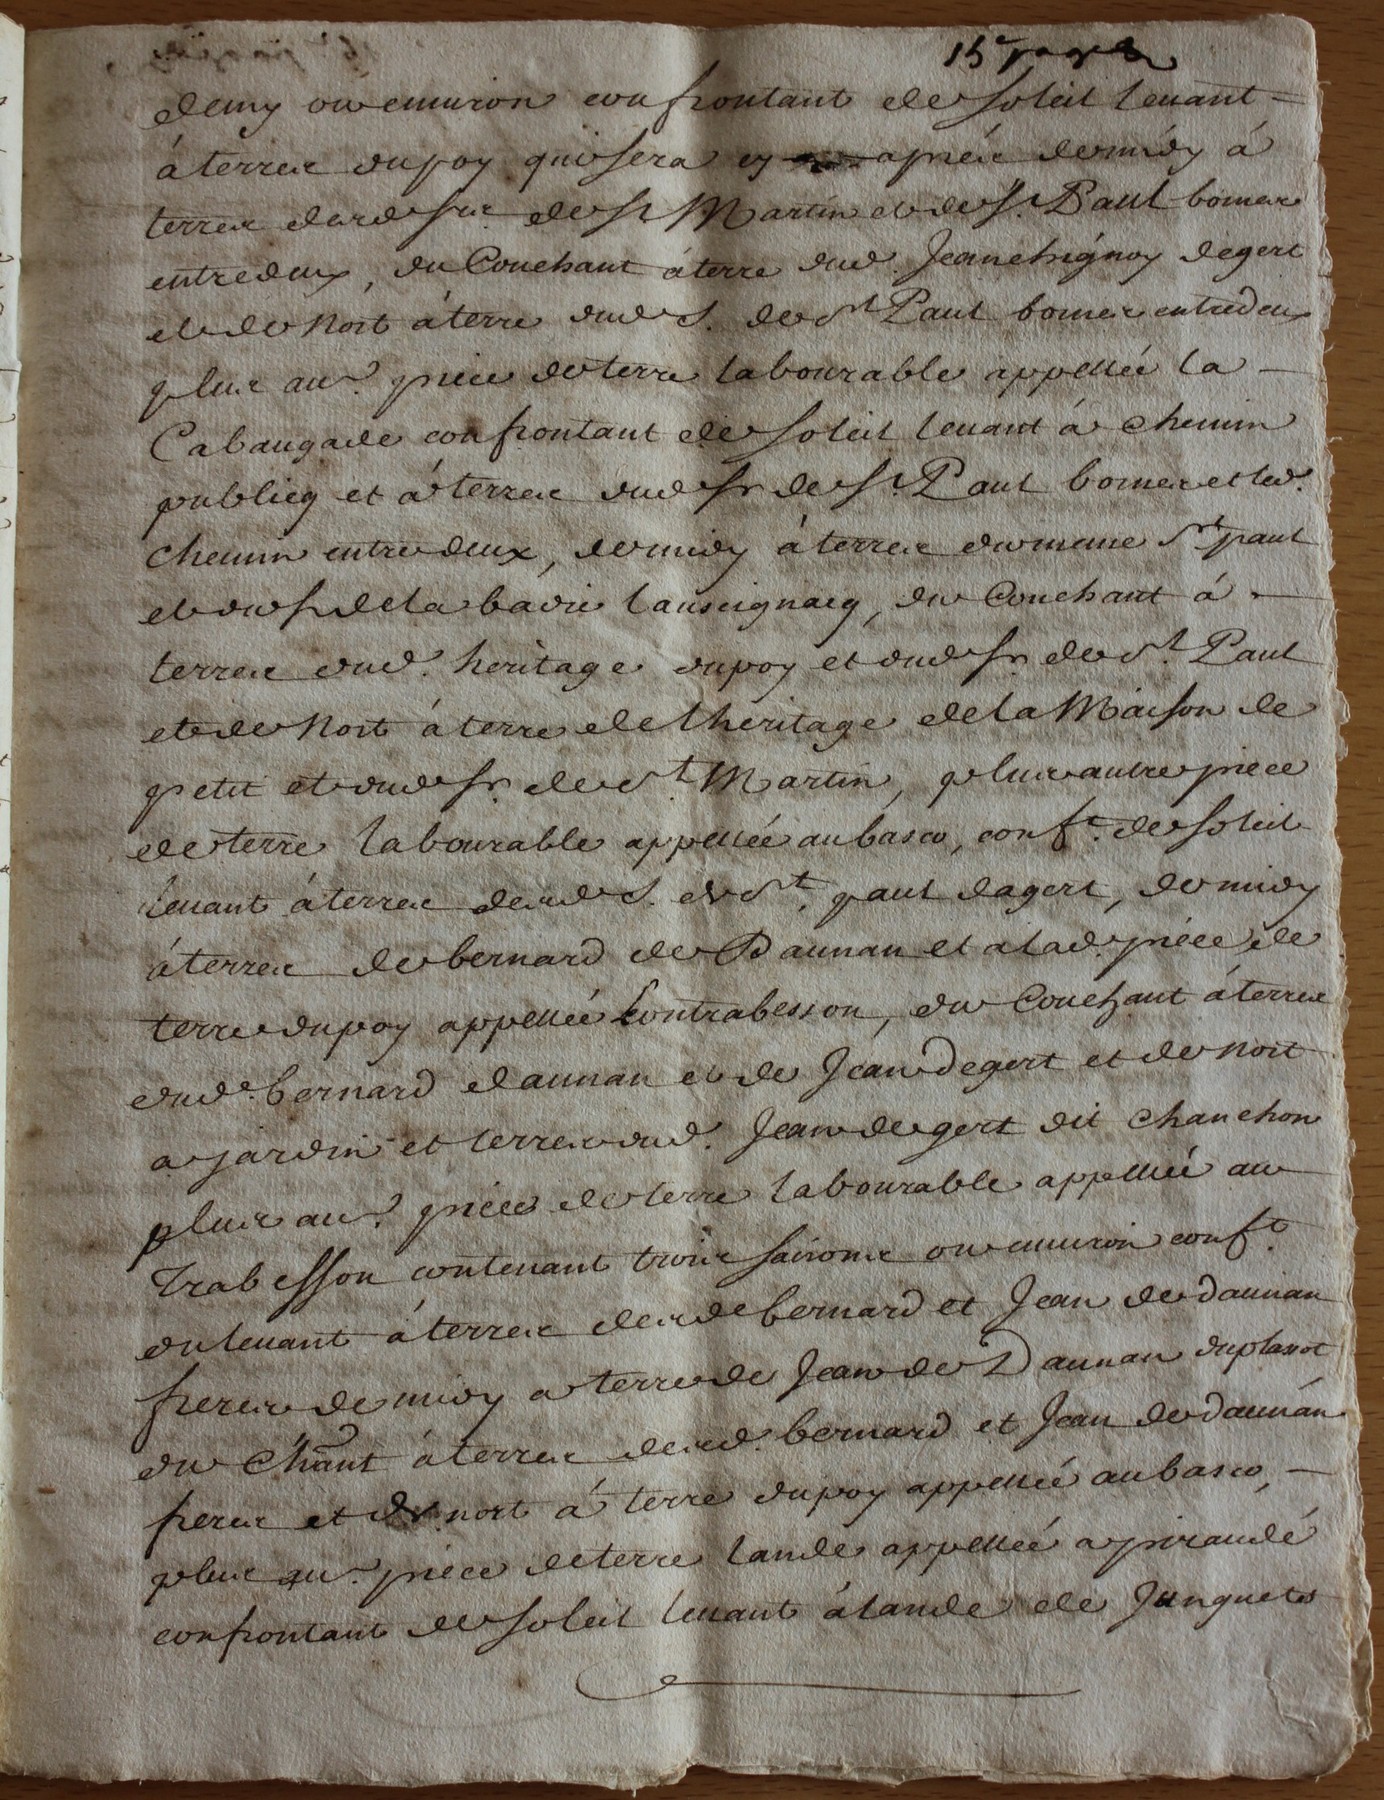 15e page
demy ou enuiron confrontant de soleil leuant
á terres du poy qui sera cy aprés de midy á
terres desd srs de st Martin et de st. Paul bornes
entredeux, du Couchant á terre dud. Jean chignoy degert
et de Nort á terre dud s. de st Paul bornes entredeux
plus aue. piece de terre labourable appellée la
Cabaugade confrontant de soleil leuant á chemin
publicq et á terres dud sr de st. Paul bornes et led.
chemin entre deux, de midy á terres du meme st paul
et du sr de la badie lauseignacq, du Couchant á
terres dud. heritage du poy et dud sr de st. Paul
et de Nort á terre de lheritage de la Maison de
petit et dud sr. de st. Martin, plus autre piece
de terre labourable appellée au basco, conft. de soleil
leuant á terres desd s. de st. paul dagert, de midy
á terres de bernard de Daunan et a lad. piéce de
terre du poy appellée Contrabesson, du Couchant á terres
dud. bernard daunan et de Jean Degert et de nort
a jardin et terres dud. Jean degert dit chanchon
plus aue. piéce de terre labourable appellée au
Trabesson contenant trois ou enuiron conft.
du leuant á terres desd bernard et Jean de daunan
freres de midy a terre de Jean de Daunan duplassot
du Chant á terres desd. bernard et Jean de daunan
freres et de nort á terre du poy appellée au basco,
plus aue. piéce de terre lande appellée a piraudé
confrontant de soleil leuant á lande de Junquets